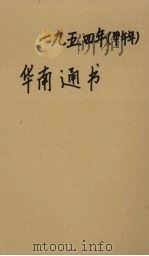 一九五四年(甲午年)
华南通书